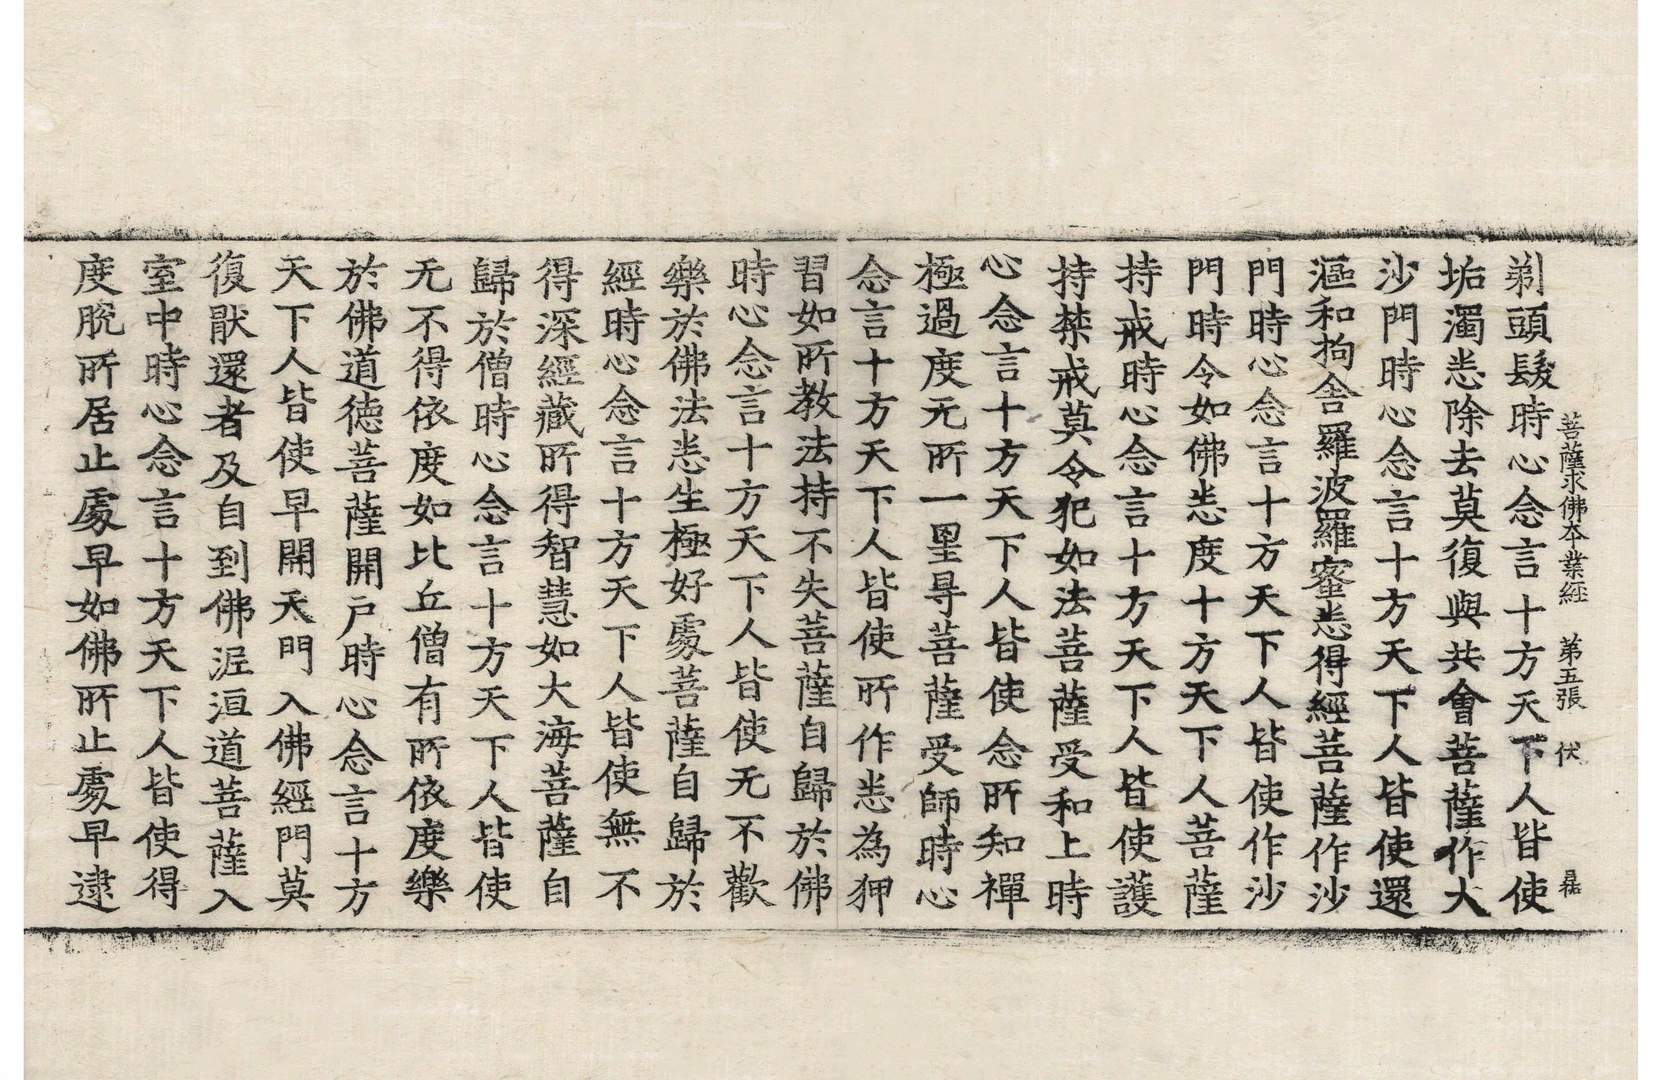 菩薩求佛本業經 第五張 伏
剃頭髮時心念言十方天下人皆使
垢濁悉除去莫復與共會菩薩作大
沙門時心念言十方天下人皆使還
漚和拘舍羅波羅蜜悉得經菩薩作沙
門時心念言十方天下人皆使作沙
門時令如佛悉度十方天下人菩薩
持戒時心念言十方天下人皆使護
持禁戒莫令犯如法菩薩受和上時
心念言十方天下人皆使念所知禪
極過度无所一罣㝵菩薩受師時心
念言十方天下人皆使所作悉為狎
習如所教法持不失菩薩自歸於佛
時心念言十方天下人皆使无不歡
樂於佛法悉生極好處菩薩自歸於
經時心念言十方天下人皆使無不
得深經藏所得智慧如大海菩薩自
歸於僧時心念言十方天下人皆使
无不得依度如比丘僧有所依度樂
於佛道德菩薩開戶時心念言十方
天下人皆使早開天門入佛經門莫
復猒還者及自到佛泥洹道菩薩入
室中時心念言十方天下人皆使得
度脫所居止處早如佛所止處早逮